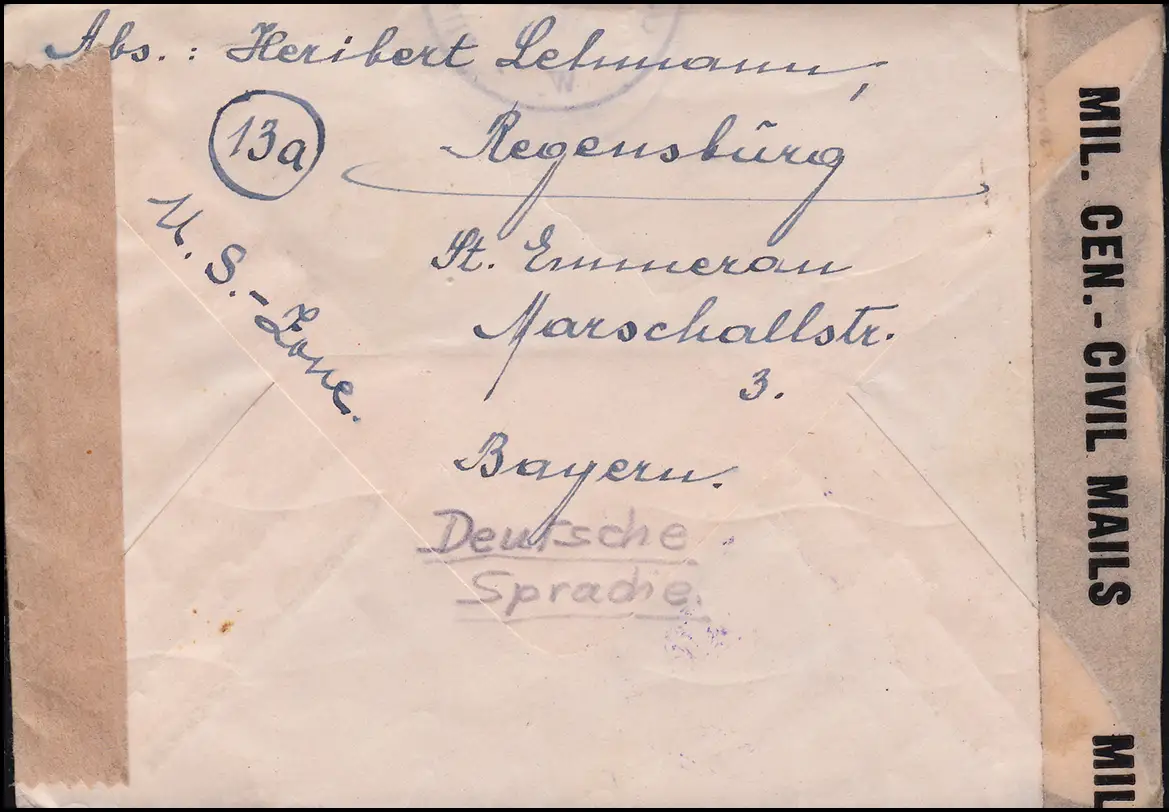 Abs.: Heribert Lehmann,
13a
Regensbūrg
U.S.-Zone.
St. Emmeram
Marschallstr.
3.
Bayern.
Deutsche
Sprache.
MIL. CEN.-CIVIL MAILS
MIL